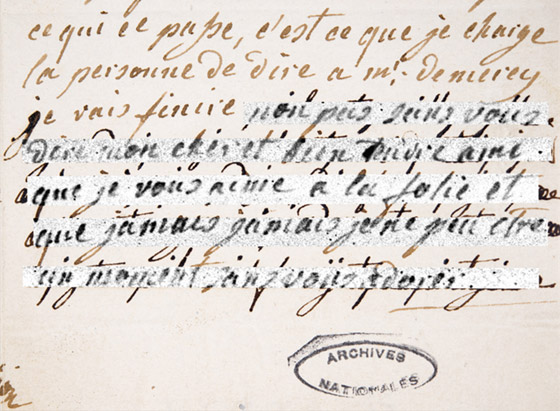 ce qui ce passe, c'est ce que je charge
la personne de dire a mr. de mercy
je vais finire non pas sans vous
dire mon cher et bien tendre ami
que je vous aime a la folie et
que jamais jamais je ne peu être
un moment sans vous adorer
ARCHIVES
NATIONALES